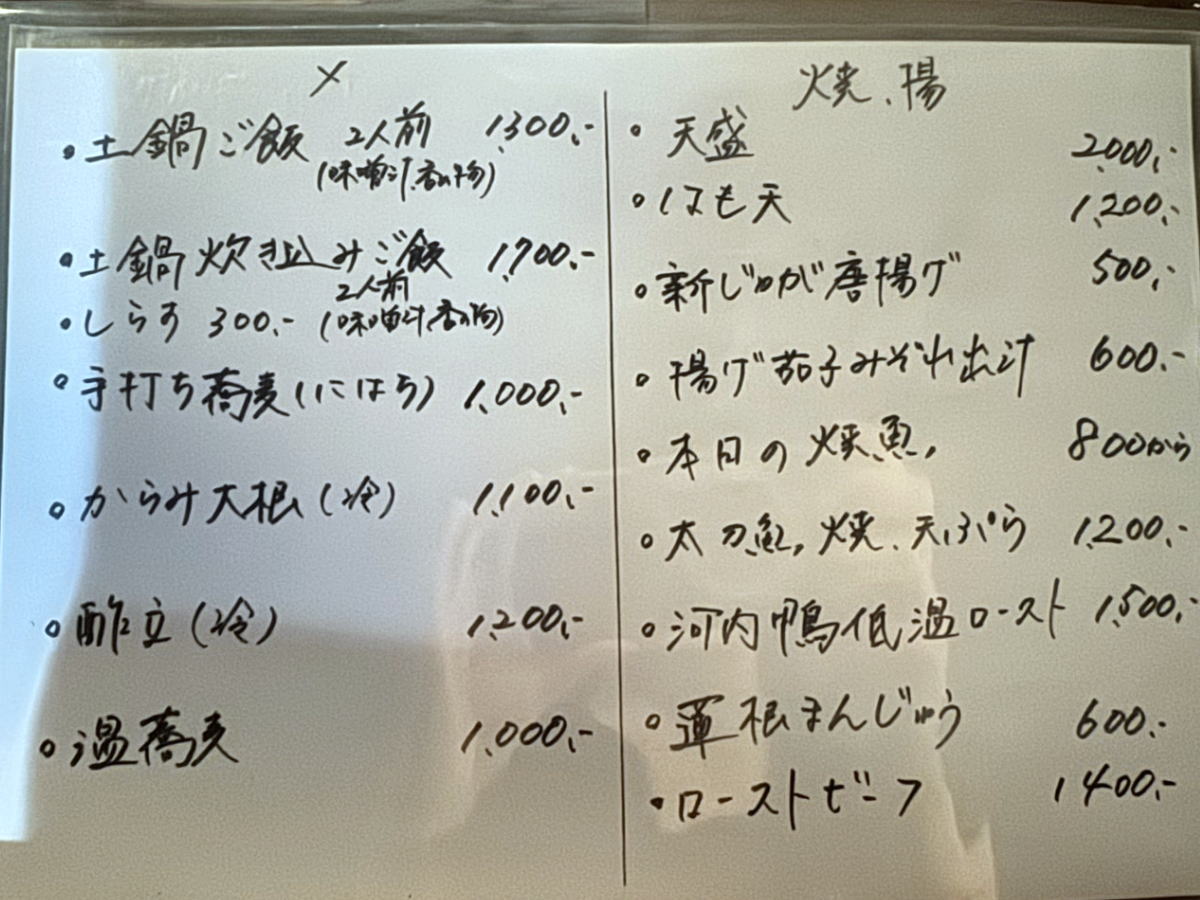 〆
• 土鍋ご飯 2人前 1,300.-
(味噌汁.香の物)
• 土鍋炊き込みご飯 1,700.-
2人前
• しらす 300.- (味噌汁.香の物)
• 手打ち蕎麦(にはち) 1,000.-
• からみ大根(冷) 1,100.-
• 酢立(冷) 1,200.-
• 温蕎麦 1,000.-
焼、揚
• 天盛 2,000.-
• はも天 1,200.-
• 新じゃが唐揚げ 500.-
• 揚げ茄子みぞれ出汁 600.-
• 本日の焼魚, 800から
• 太刀魚, 焼、天ぷら 1,200.-
• 河内鴨低温ロースト 1,500.-
• 蓮根まんじゅう 600.-
• ローストビーフ 1400.-